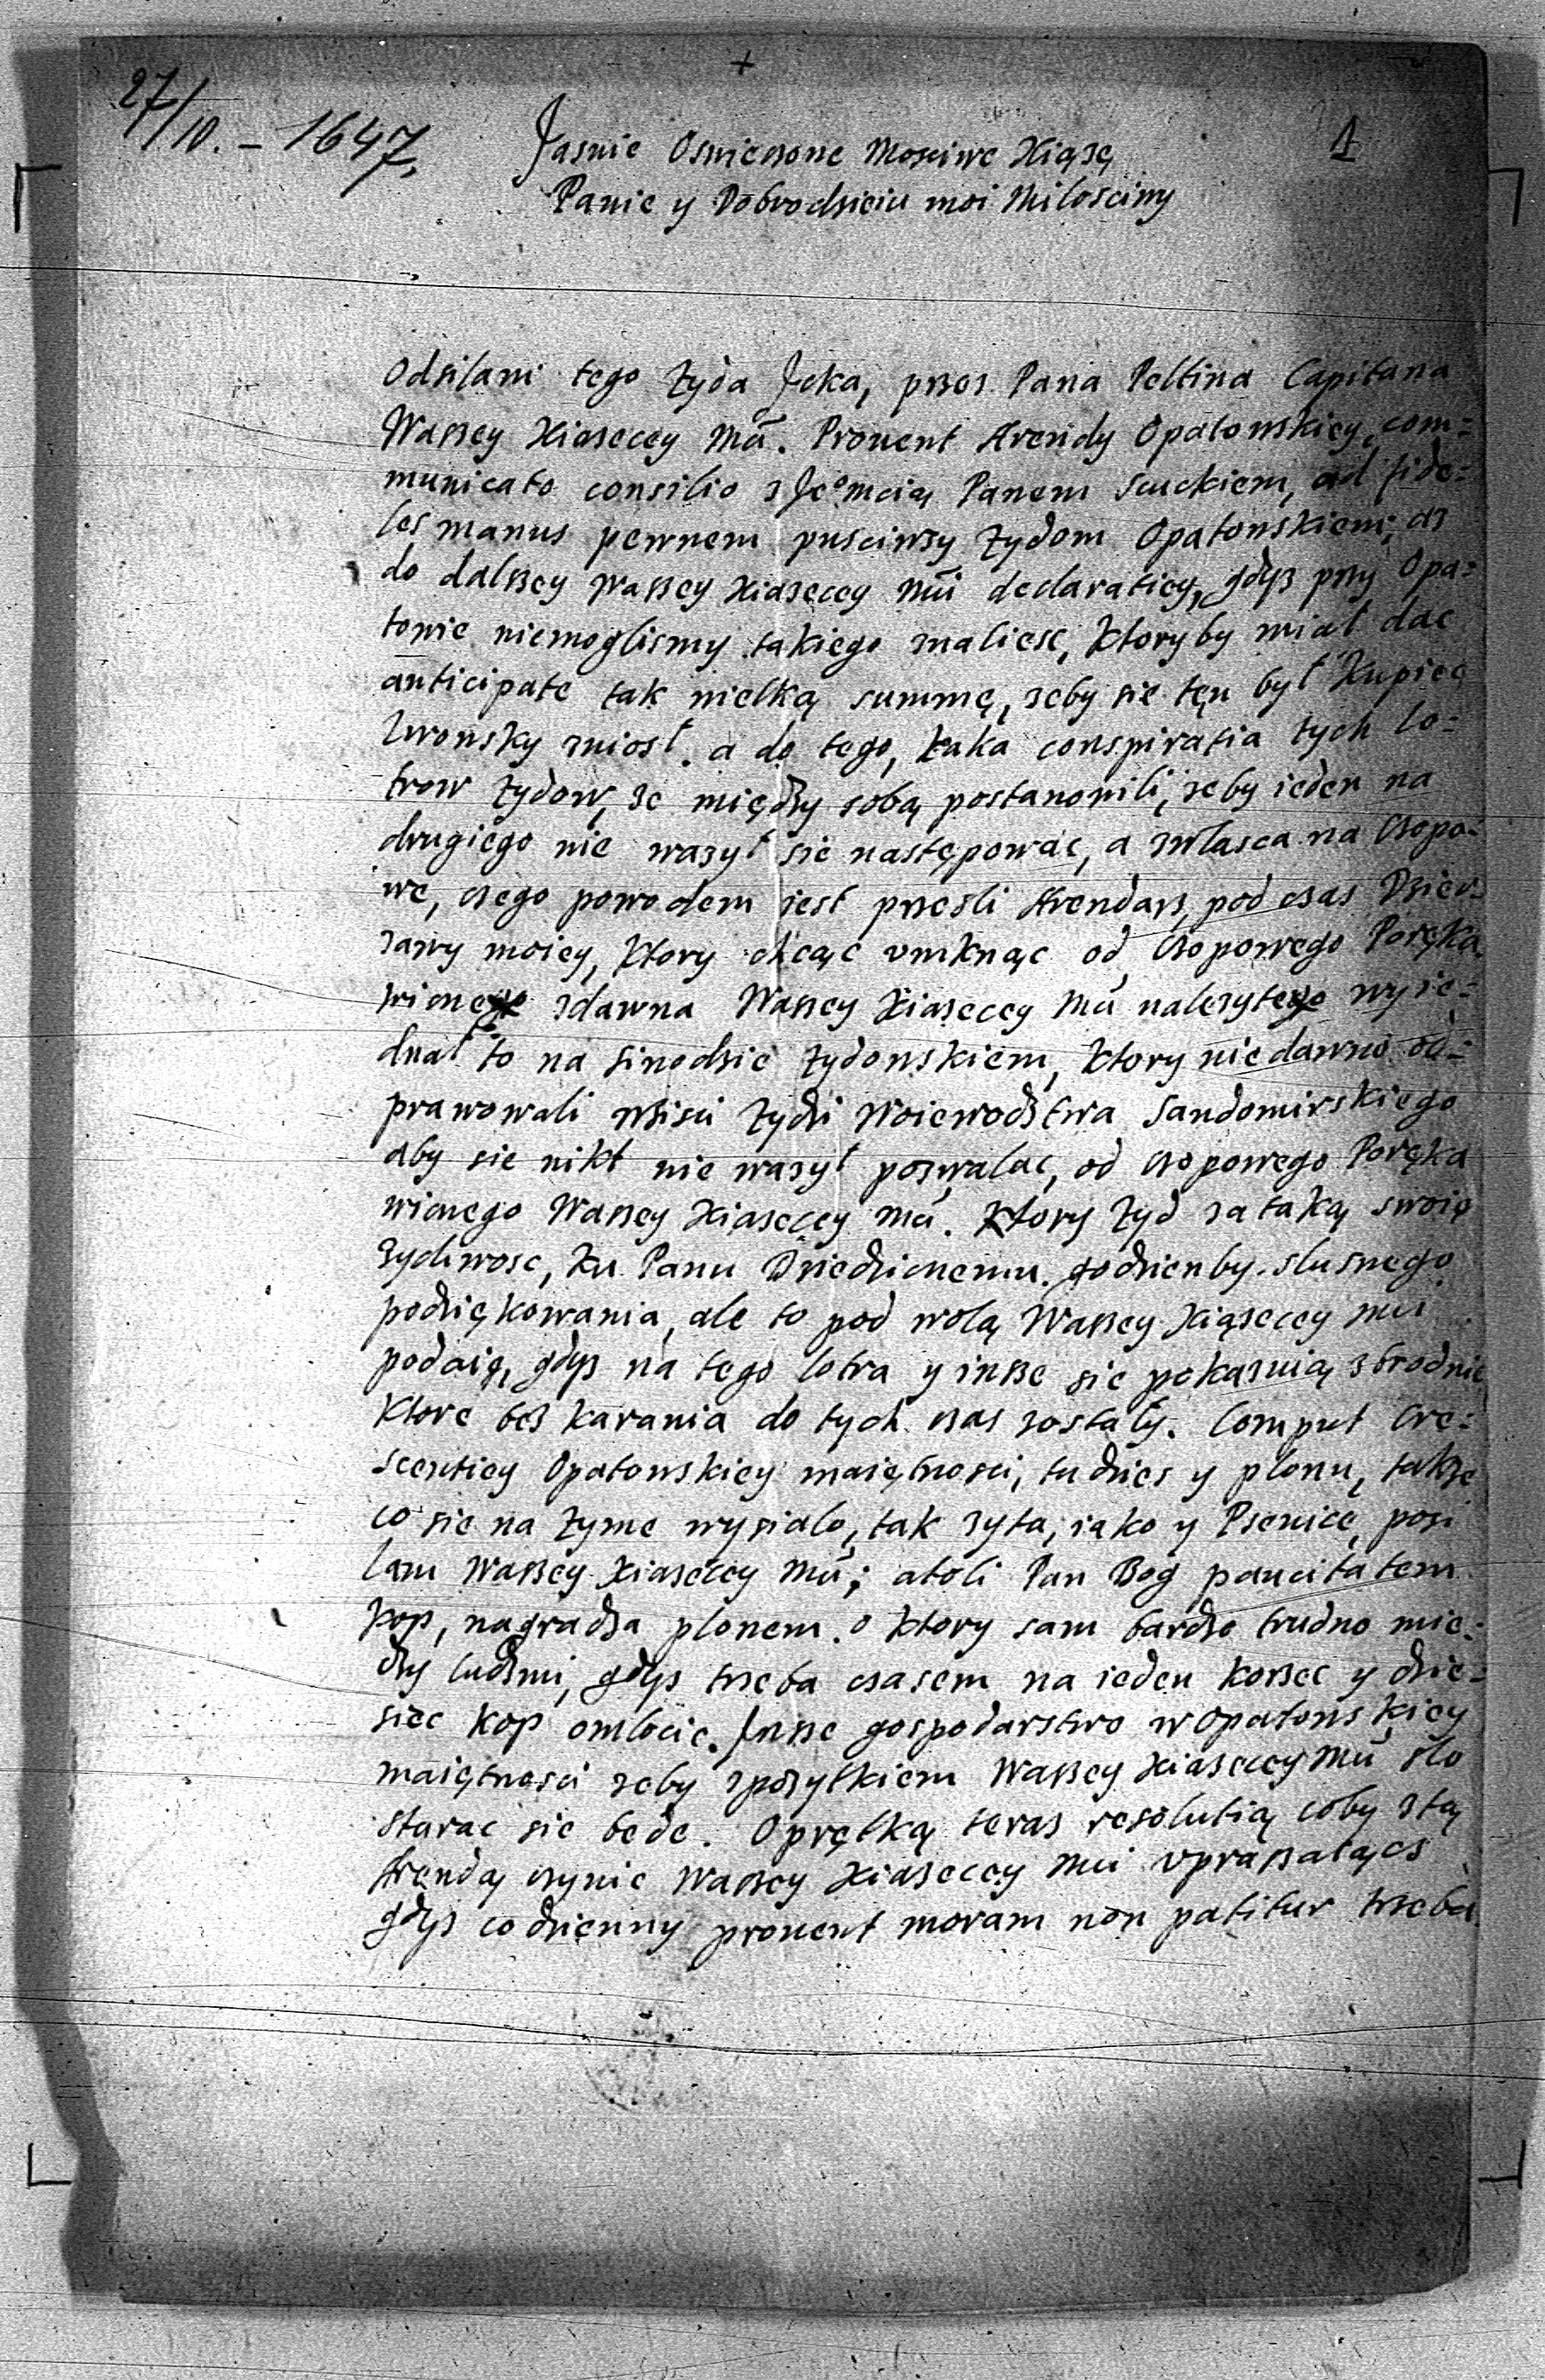 27/10. - 1647.
1
Jasnie Oswiecone Mosciwe Xiąze
Panie y Dobrodzieiu moi Milosciwy
Odsilam tego Zyda Jcka, przez Pana Peltina Capitana
Waszey Xiazecey Mći. Prouent Arendy Opatowskiey, com=
municato consilio z Je⁰mcią Panem Suckiem, ad fide=
les manus pewnem pusciwszy Zydom Opatowskiem, az
do dalszey Waszey Xiazecey Mći declaratiey, gdysz przy Opa=
towie niemoglismy takiego znaliesc, ktoryby mial dac
anticipate tak wielką summę, zeby sie tęn był Kupiec
Lwowsky zniosł. a do tego, taka conspiratia tych lo=
trow Zydow, ze między sobą postanowili, zeby ieden na
drugiego nie wazył sie następowac, a zwlasca na Czopo=
we, czego powodem iest przesli Arendarz, pod czas Dzier=
zawy moiey, ktory chcąc vmknąc od Czopowego Poręka
wicnego zdawna Waszey Xiazecey Mći nalezytego wyie=
dnał to na Sinodzie Zydowskiem, ktory niedawno od=
prawowali wszisci Zydzi Woiewodztwa Sandomirskiego
aby sie nikt nie wazył pozwalac, od Czopowego Poręka
wicnego Waszey Xiazecey Mći. Ktory Zyd za taką swoię
zycliwosc, ku Panu Dziedzicnemu. godzien by slusnego
podziękowania, ale to pod wolą Waszey Xiązecey Mći
podaię, gdysz na tego lotra y insze sie pokazuią zbrodnie
Ktore bez karania do tych czas zostały. Comput Cre=
scentiey Opatowskiey maiętnosci, tudzies y plonu, takze
co sie na zyme wysialo, tak zyta, iako y Psenice, posi
lam Waszey Xiazecey Mći; atoli Pan Bog paucitatem
kop, nagradza plonem. o ktory sam bardzo trudno mie=
dzy ludzmi, gdys trzeba czasem na ieden korzec y dzie=
siec kop omlocic. Jnsze gospodarstwo w Opatowskiey
maiętnosci zeby z pozytkiem Waszey Xiazecey Mći slo
starac sie bede. O prętką teraz resolutią coby z tą
Arendą czynic Waszey Xiazecey Mći vpraszaiącs
gdysz codzienny prouent moram non patitur trzeba